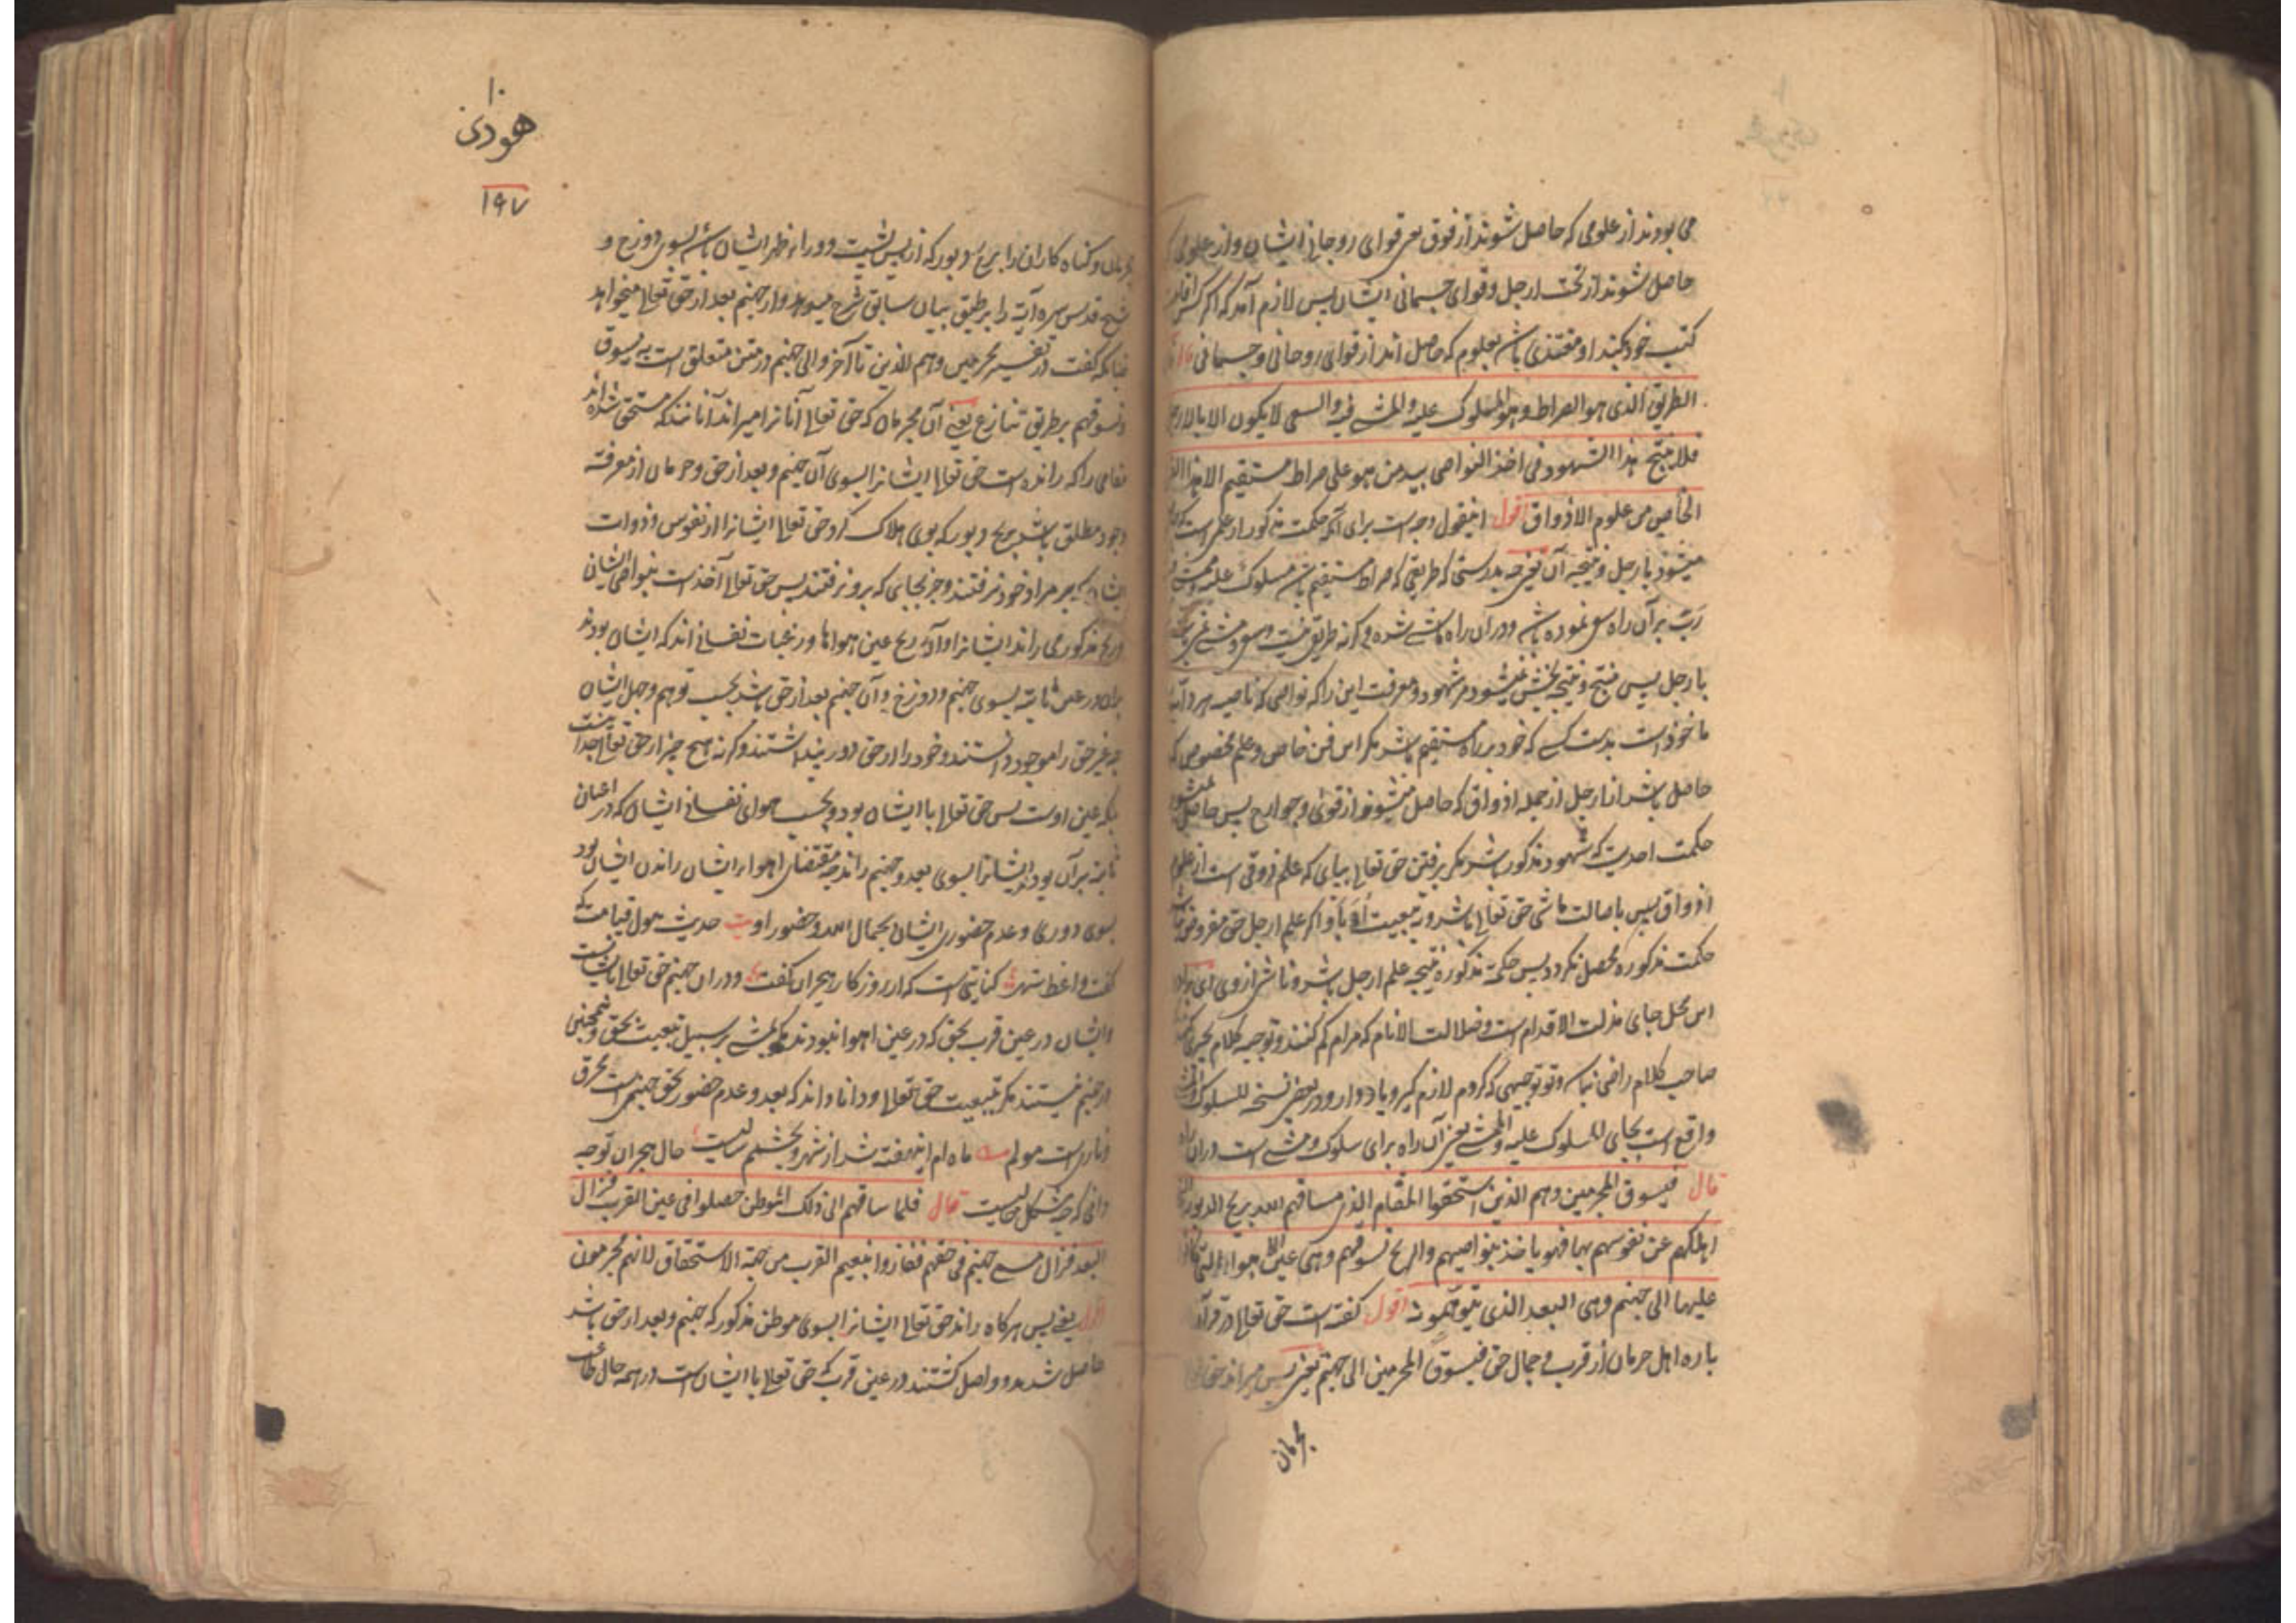 می بودند از علومی که حاصل شوند از فوق یعنی قوای روحانی ایشان و از علومی
حاصل شوند از تحت ارجل و قوای جسمانی ایشان پس لازم آمد که اگر
کتب خود کنند او مغتذی باشد بعلوم که حاصل اند از قوای روحانی و جسمانی قال
الطریق الذی هو الصراط و هو المسلوک علیه والمشی فیه والسعی لا یکون الا بالارجل
فلا ینتج هذا الشهود فی اخذ النواصی بید من هو علی صراط مستقیم الا هذا الفن
الخاص من علوم الاذواق اقول اینقول وجه است برای آنکه حکمت مذکور از علم است که
میشود بارجل و نتیجه آن یعنی چه بدرستی که طریقی که صراط مستقیم باشد مسلوک علیه
بر آن راه سعی نموده باشد و در آن راه ماشی شده و گرنه طریق نیست و سعی و مشی
بارجل پس منتج و نتیجه بخش نمیشود مر شهود و معرفت این را که نواصی که ناصیه هر دابه
ماخوذ است بدست کسی که خود بر راه مستقیم باشد مگر این فن خاص و علم مخصوص که
حاصل باشد از ارجل از جمله اذواق که حاصل میشوند از قوی و جوارح پس حاصل
حکمت احدیت که شهود مذکور باشد مگر برفتن حق تعالی بپای که علم ذوقی است از علوم
اذواق پس باصالت ماشی حق تعالی باشد و به تبعیت و اگر علم ارجل حق مفروض
حکمت مذکوره محصل نگردد پس حکمة مذکوره نتیجه علم ارجل باشد و ناشی از وی
این محل جای مزلت الاقدام است و ضلالت الانام که مرام گم کنند و توجیه کلام بچیزی کنند
صاحب کلام راضی نباشد و تو توجیهی که کردم لازم گیر و یاد دار و در بعض نسخه للسلوک
واقع است بجای المسلوک علیه والمشی یعنی آن راه برای سلوک و مشی است در آن راه
قال فیسوق المجرمین وهم الذین استحقوا المقام الذی ساقهم الله بریح الدبور
اهلکهم عن نفوسهم بها فهو یاخذ بنواصیهم والریح تسوقهم وهی عین الاهواء التی کانوا
علیها الی جهنم وهی البعد الذی یتوهمونه اقول گفته است حق تعالی در قرآن
باره اهل حرمان از قرب و جمال حق فیسوق المجرمین الی جهنم یعنی پس میراند حق تعالی
مجرمان
۱۰
هودی
۱۹۷
مجرمان و گناه کاران را بریح دبور که از پس پشت و وراء ظهر ایشان باشد بسوی دوزخ و
شیخ قدس سره آیة را بر طبق بیان سابق شرح میدهد و از جهنم بعد از حق تعالی میخواهد
چنانکه گفت در تفسیر مجرمین وهم الذین تا آخر و الی جهنم در متن متعلق است به یسوق
و تسوقهم بر طریق تنازع یعنی آن مجرمان که حق تعالی آنانرا میراند آنانند که مستحق شده اند
مقامی را که رانده است حق تعالی ایشانرا بسوی آن جهنم و بعد از حق و حرمان از معرفة
وجود مطلق باشد بریح دبور که بوی هلاک کرد حق تعالی ایشانرا از نفوس و ذوات
ایشان که بر مراد خود نرفتند و جز بجایی که برو نرفتند پس حق تعالی آخذ است بنواصی ایشان
و ریح مذکور می راند ایشانرا و آن ریح عین هواها و رغبات نفسانی اند که ایشان بودند
بران در عین ثابته بسوی جهنم و دوزخ و آن جهنم بعد از حق باشد بحسب توهم و جهل ایشان
چه غیر حق را موجود دانستند و خود را از حق دور پنداشتند و گرنه هیچ چیز از حق تعالی جدا نیست
بلکه عین اوست پس حق تعالی با ایشان بود و بحسب هوای نفسانی ایشان که در اعیان
ثابته بر آن بودند ایشانرا بسوی بعد و جهنم راند چه مقتضای اهواء ایشان راندن ایشان بود
بسوی دوری و عدم حضوری ایشان بجمال الله و حضور او بیت حدیث هول قیامت که
گفت واعظ شهر کنایتی است که از روزگار هجران گفت و در آن جهنم حق تعالی با ایشانست
و ایشان در عین قرب بحق که در عین اهوا نبودند مگر بر سبیل تبعیت بحق و همچنین
در جهنم نیستند مگر بتبعیت حق تعالی و دانا داند که بعد و عدم حضور بحق جهنمی است محرق
و ناری است مولم ماه ام این هفته شد از شهر و بچشمم سالیست حال هجران تو چه
دانی که چه مشکل حالیست قال فلما ساقهم الی ذلک الموطن حصلوا فی عین القرب فزال
البعد فزال مسمی جهنم فی حقهم ففازوا بنعیم القرب من جهة الاستحقاق لانهم مجرمون
اقول یعنی پس هرگاه راند حق تعالی ایشانرا بسوی موطن مذکور که جهنم و بعد از حق باشد
حاصل شدند و واصل گشتند در عین قرب که حق تعالی با ایشان است در همه حال